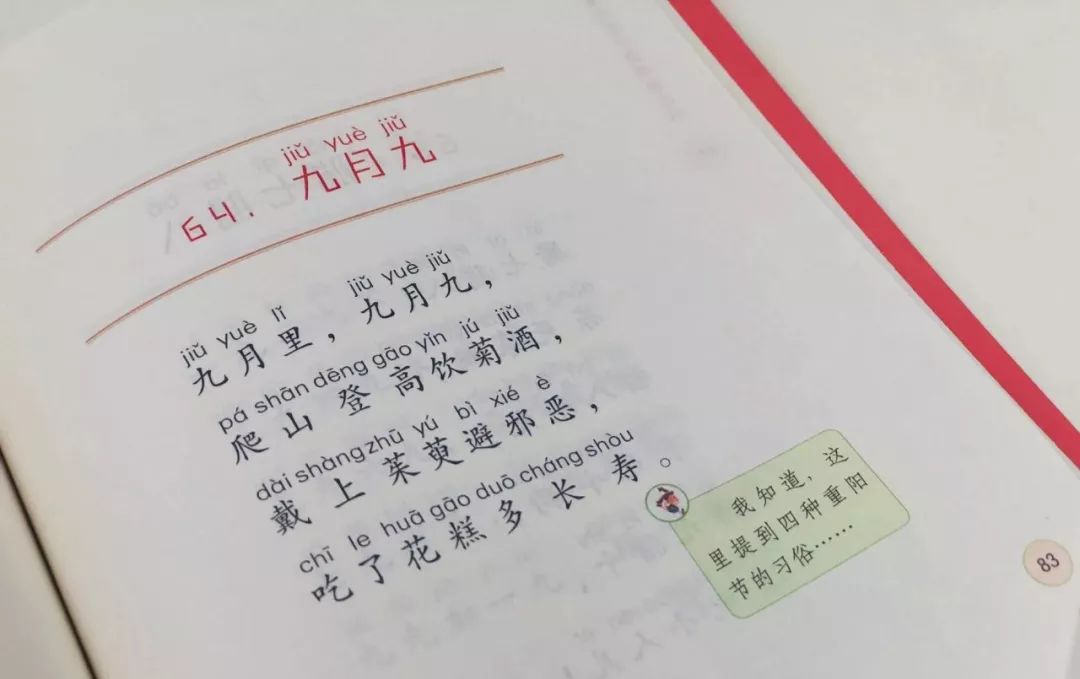 jiǔ yuè jiǔ
64. 九月九
jiǔ yuè lǐ jiǔ yuè jiǔ
九月里，九月九，
pá shān dēng gāo yǐn jú jiǔ
爬山登高饮菊酒，
dài shàng zhū yú bì xié è
戴上茱萸避邪恶，
chī le huā gāo duō cháng shòu
吃了花糕多长寿。
我知道，这
里提到四种重阳
节的习俗……
83